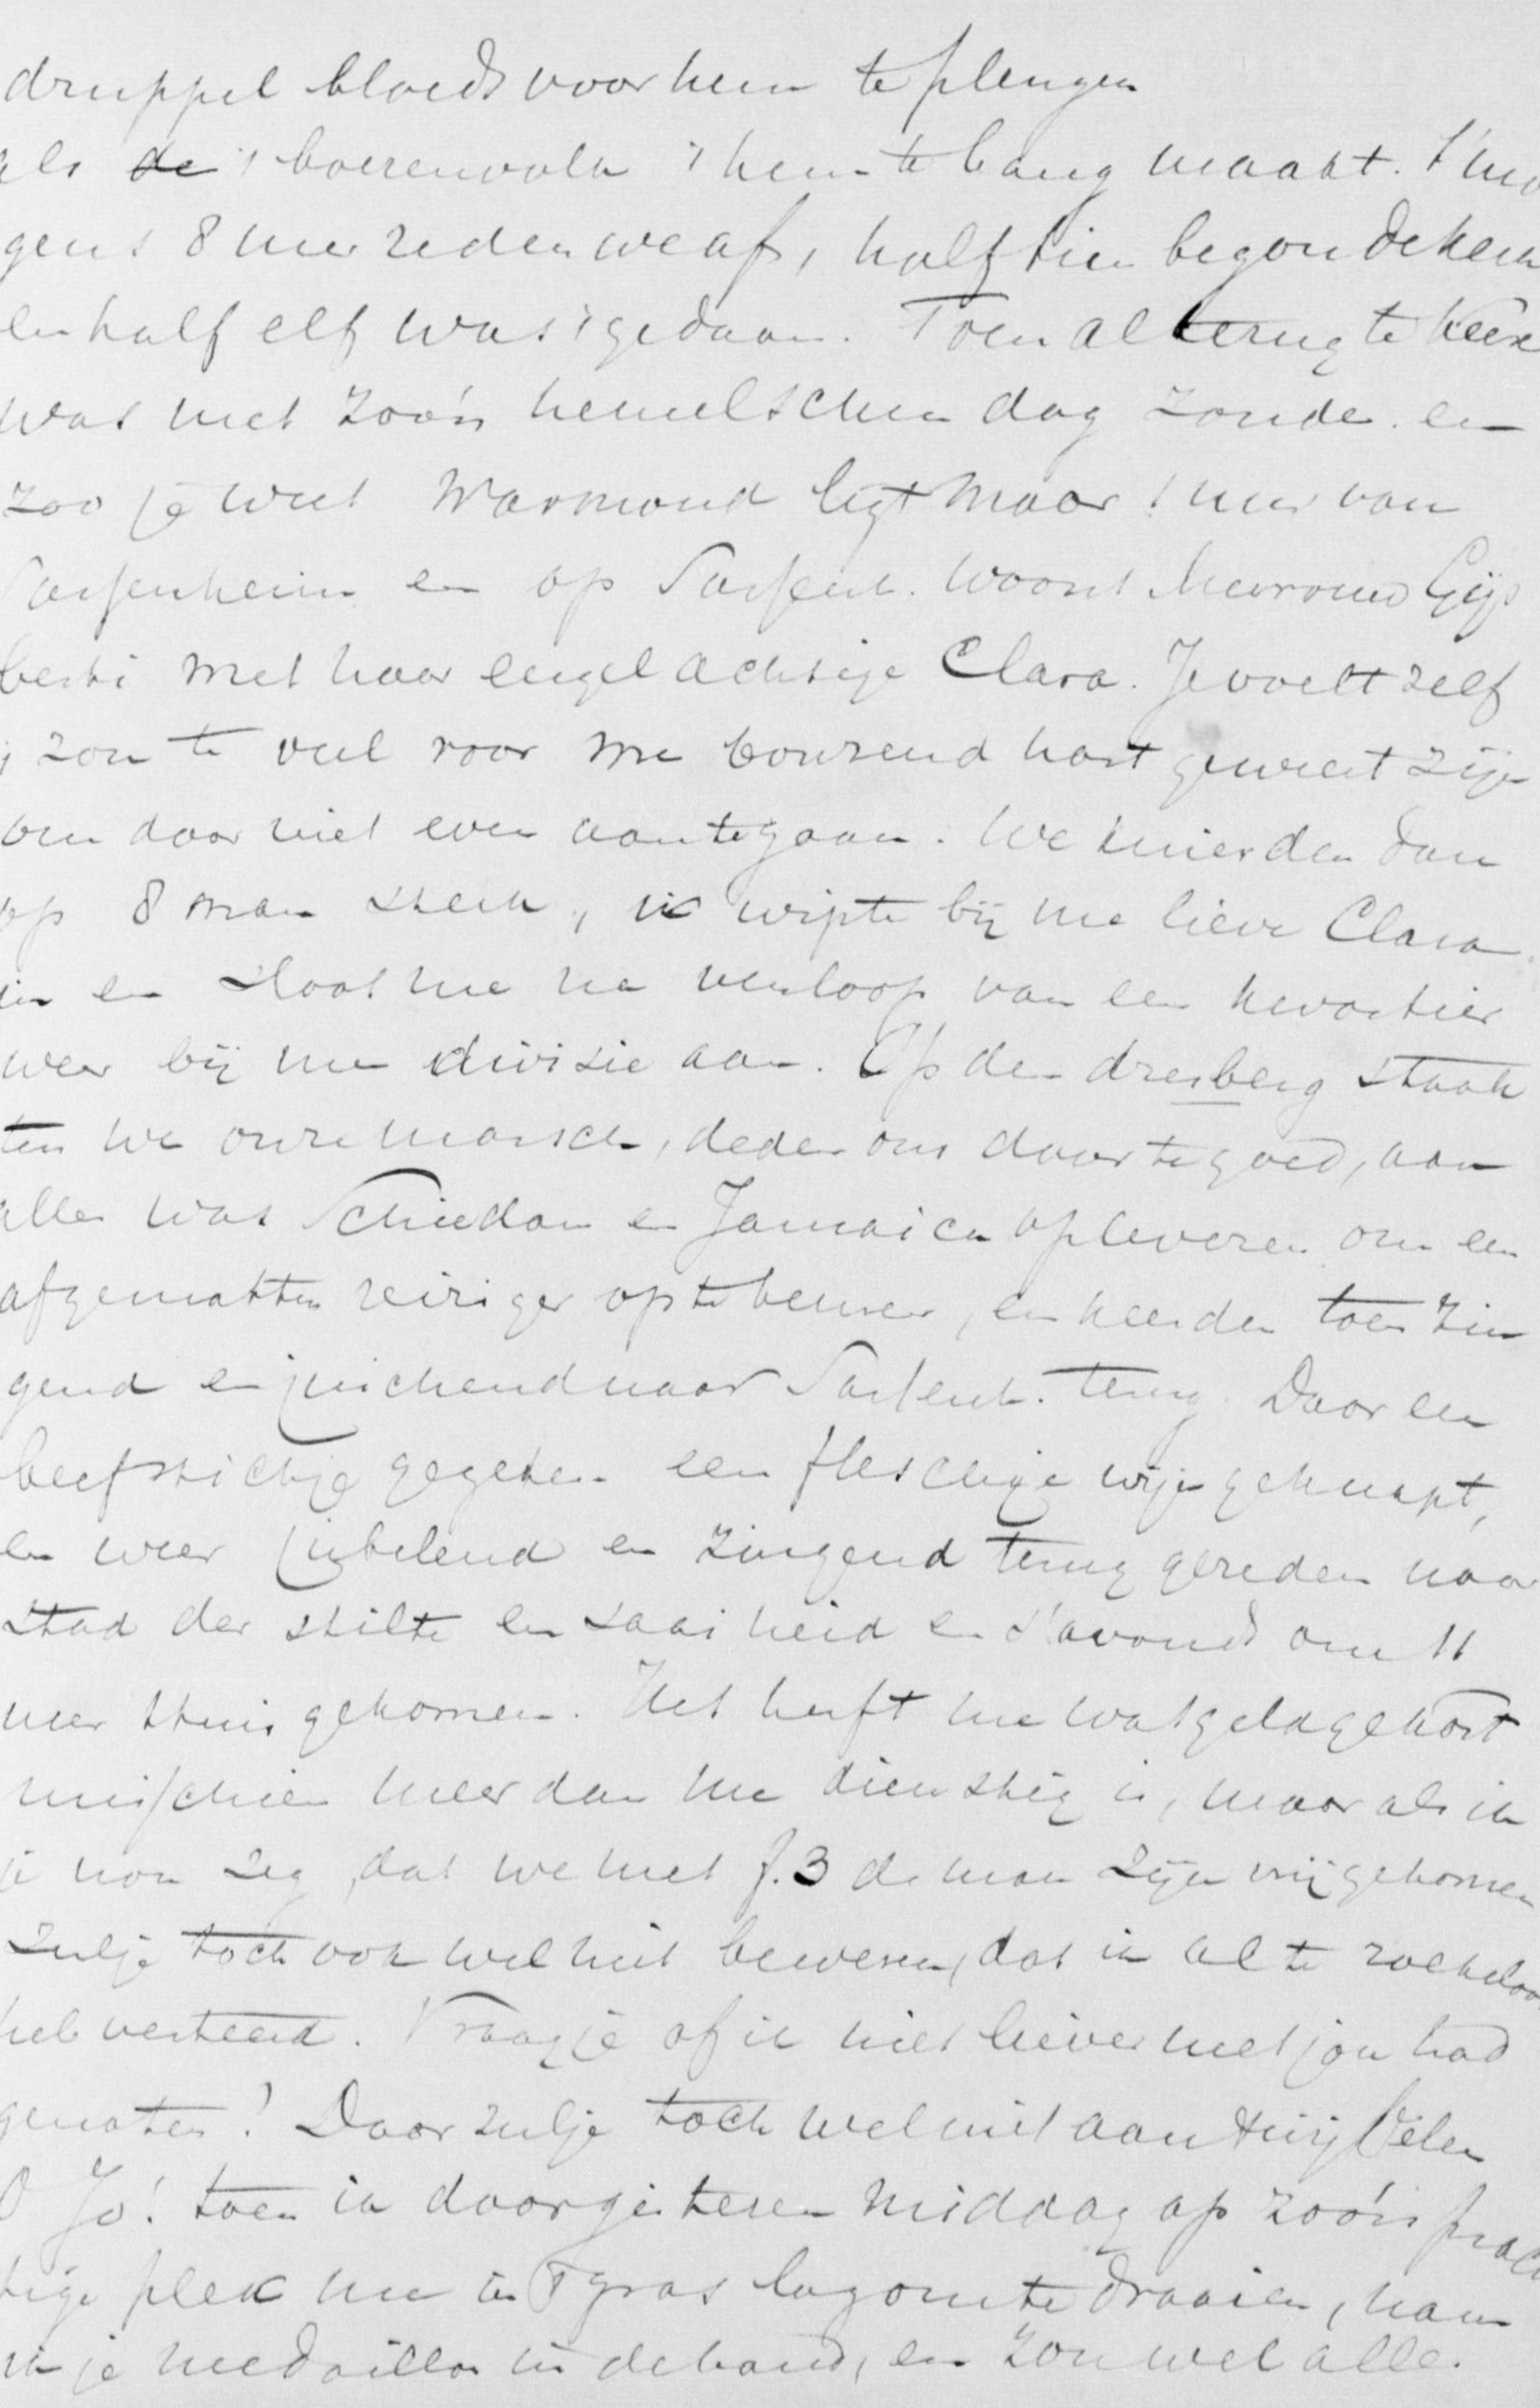 druppel bloeds voor hem te plengen
als de 't boerenvolk 't hem te bang maakt. 's mor
gens 8 uur reden we af, half tien begon de kerk
en half elf was 't gedaan. Toen al terug te keeren
was met zoo'n hemelschen dag zonde. en
zoo je weet Warmond ligt maar 1 uur van
Sassenheim en op Sassenh. woont Mevrouw Gijs
berti met haar engelachtige Clara. Je voelt zelf
't zou te veel voor me bonzend hart geweest zijn
om daar niet even aantegaan. We kuierden dan
op 8 man sterk, ik wipte bij me lieve Clara
in en sloot me na verloop van een kwartier
weer bij me divisie aan. Op den driesberg staak
ten we onze marsch, deden ons daar te goed, aan
alles wat Schiedam en Jamaica opleveren om een
afgematten reiziger optebeuren, en keerden toen zin
gend en juichend naar Sassenh. terug. Daar een
beefstickje gegeten een fleschje wijn geknapt,
en weer jubelend en zingend terug gereden naar
stad der stilte en saaiheid en 's avonds om 11
uur thuis gekomen. Het heeft me wat geld gekost
misschien meer dan me dienstig is, maar als ik
je nou zeg, dat we met f. 3 de man zijn vrijgekomen
zulje toch ook wel niet beweren, dat ik al te roekeloos
heb verteerd. Vraag je of ik niet liever met jou had
genoten! Daar zulje toch wel niet aan twijfelen
O Jo! toen ik daar gisteren middag op zoo'n prach
tige plek me in 't gras lag om te draaien, nam
ik je medaillon in de hand, en zou wel alle.